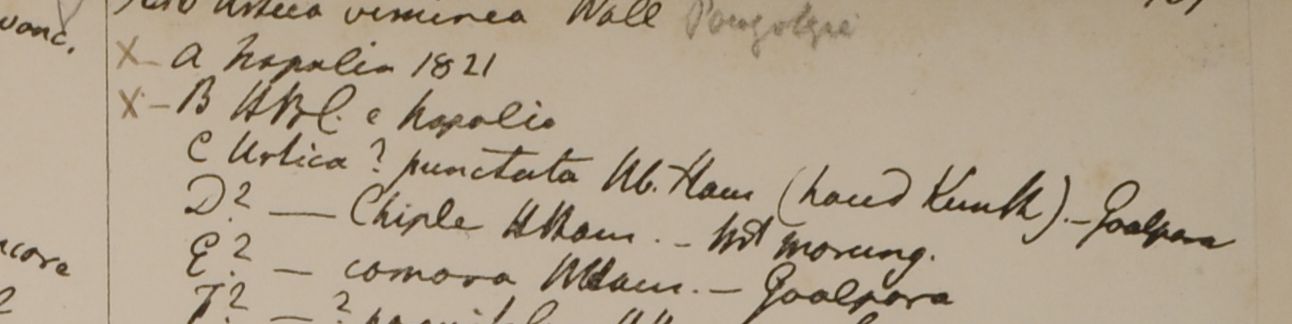 Urtica viminea Wall
A Napalia 1821
B HBC. e Napalia
C Urtica? punctata Hb. Ham (haud Kunth). - Goalpara
D? — Chiple HHam. - Hb morung.
E? — comosa HHam. - Goalpara
F? — ?
vanc.